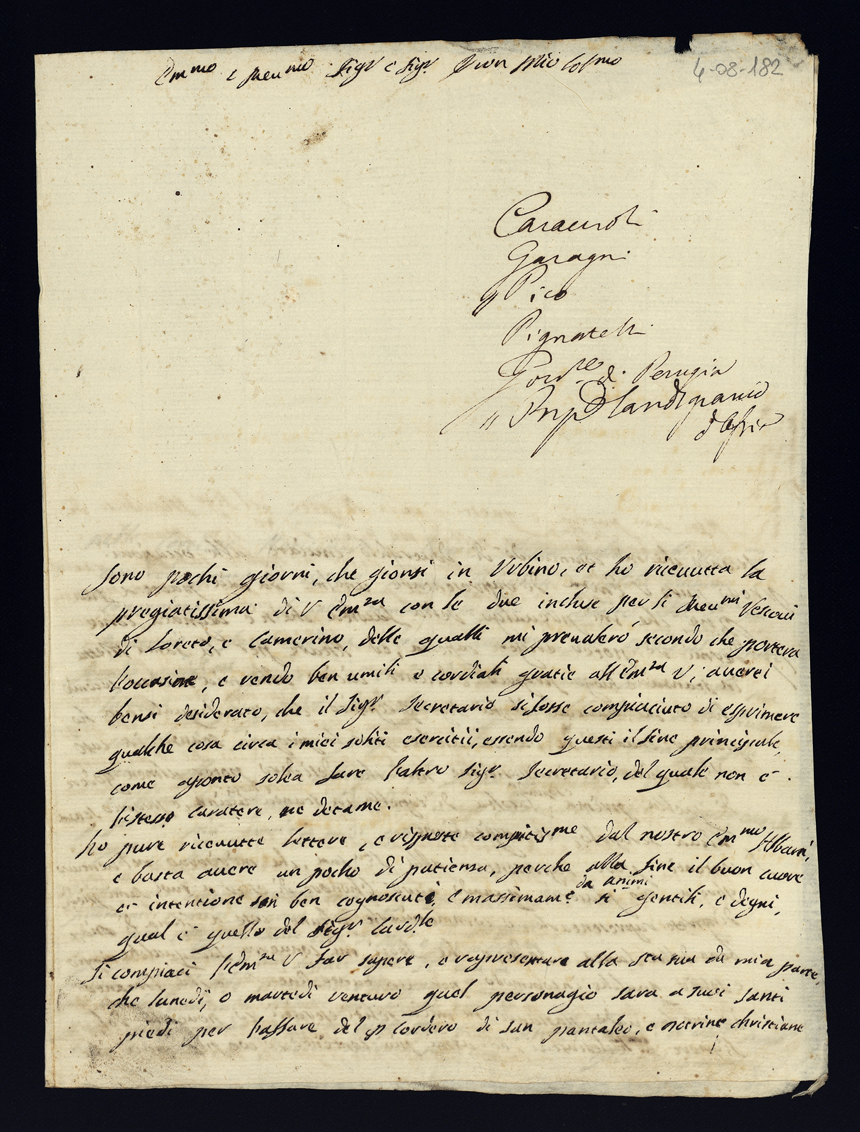 Em.mo e Reu.mo Sig.r e Sig.r Pron mio Col.mo
4-08-182
Caraccioli
Garagni
Pico
Pignatelli
Gou.re di Perugia
d'Assisi
Sono pochi giorni, che gionsi in Vrbino, et ho riceuutta la
pregiatissima di V Em.za con le due incluse per li Reu.mi Vescoui
di Loreto, e Camerino, delle qualli mi preualerò secondo che portera
l'occasione, e rendo ben umili e cordiali gratie all'Em.za V; auerei
bensi desiderato, che il Sig.r Secretario si fosse compiaciuto di esprimere
qualche cosa circa i miei soliti esercitii, essendo questi il fine principale,
come aponto solea fare l'altro Sig.r Secretario, del quale non è
l'istesso caratere, ne detame.
ho pure riceuutte lettere, e risposte compitis.me dal nostro Em.mo Albani,
e basta auere un pocho di patienza, perche alla fine il buon cuore
et intentione son ben cognosciuti, e massimam.e da animi si gentili, e degni,
qual è quello del Sig.r Card.le
Si compiaci l'Em.za V far sapere, e rappresentare alla da mia parte,
che lunedi, o martedi venturo quel personagio sara a suoi santi
piedi per l'affare del p Cordero di san pantaleo, e dotrine christiane